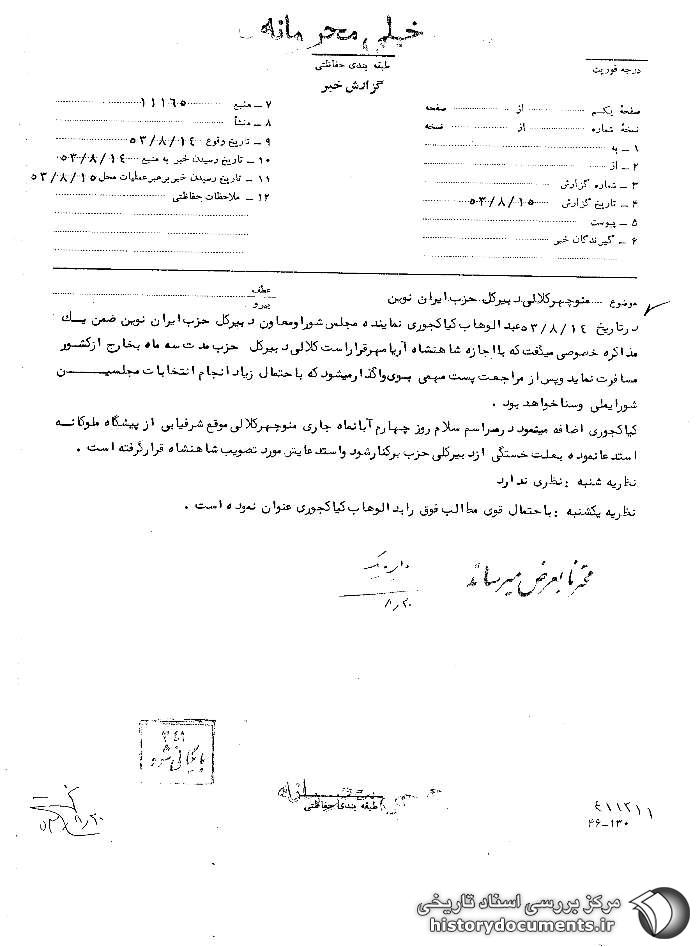 خیلی محرمانه
طبقه بندی حفاظتی
گزارش خبر
درجه فوریت
صفحهٔ یکم از صفحه
نسخهٔ شماره از نسخه
۱ – به
۲ – از
۳ – شماره گزارش
۴ – تاریخ گزارش ۵۳/۸/۱۵
۵ – پیوست
۶ – گیرندگان خبر
۷ – منبع ۱۱۱۶۵
۸ – منشأ
۹ – تاریخ وقوع ۵۳/۸/۱۴
۱۰ – تاریخ رسیدن خبر به منبع ۵۳/۸/۱۴
۱۱ – تاریخ رسیدن خبر برهبر عملیات محل ۵۳/۸/۱۵
۱۲ – ملاحظات حفاظتی
موضوع منوچهر کلالی دبیرکل حزب ایران نوین
عطف
پیرو
در تاریخ ۵۳/۸/۱۴ عبدالوهاب کیاکجوری نماینده مجلس شورا و معاون دبیرکل حزب ایران نوین ضمن یک
مذاکره خصوصی میگفت که با اجازه شاهنشاه آریامهر قرار است کلالی دبیرکل حزب مدت سه ماه بخارج از کشور
مسافرت نماید و پس از مراجعت پست مهمی بوی واگذار میشود که باحتمال زیاد انجام انتخابات مجلسین
شورایملی و سنا خواهد بود .
کیاکجوری اضافه مینمود در مراسم سلام روز چهارم آبانماه جاری منوچهر کلالی موقع شرفیابی از پیشگاه ملوکانه
استدعا نموده بعلت خستگی از دبیرکلی حزب برکنار شود و استدعایش مورد تصویب شاهنشاه قرار گرفته است .
نظریه شنبه : نظری ندارد
نظریه یکشنبه : باحتمال قوی مطالب فوق را بدالوهاب کیاکجوری عنوان نموده است .
محترمانا بعرض میرساند
۸/۲۰
۳۴۱
بایگانی شود
طبقه بندی حفاظتی
۴۱۱۲۱۱
۴۶–۱۳۰
مرکز بررسی اسناد تاریخی
historydocuments.ir